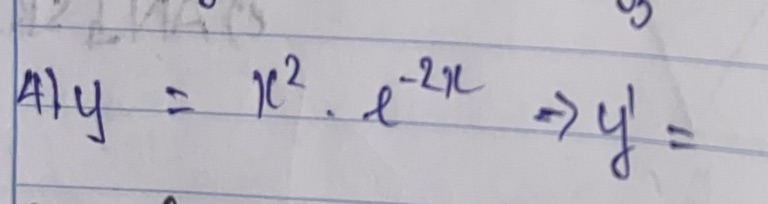 4) y = x² . e⁻²ˣ => y' =